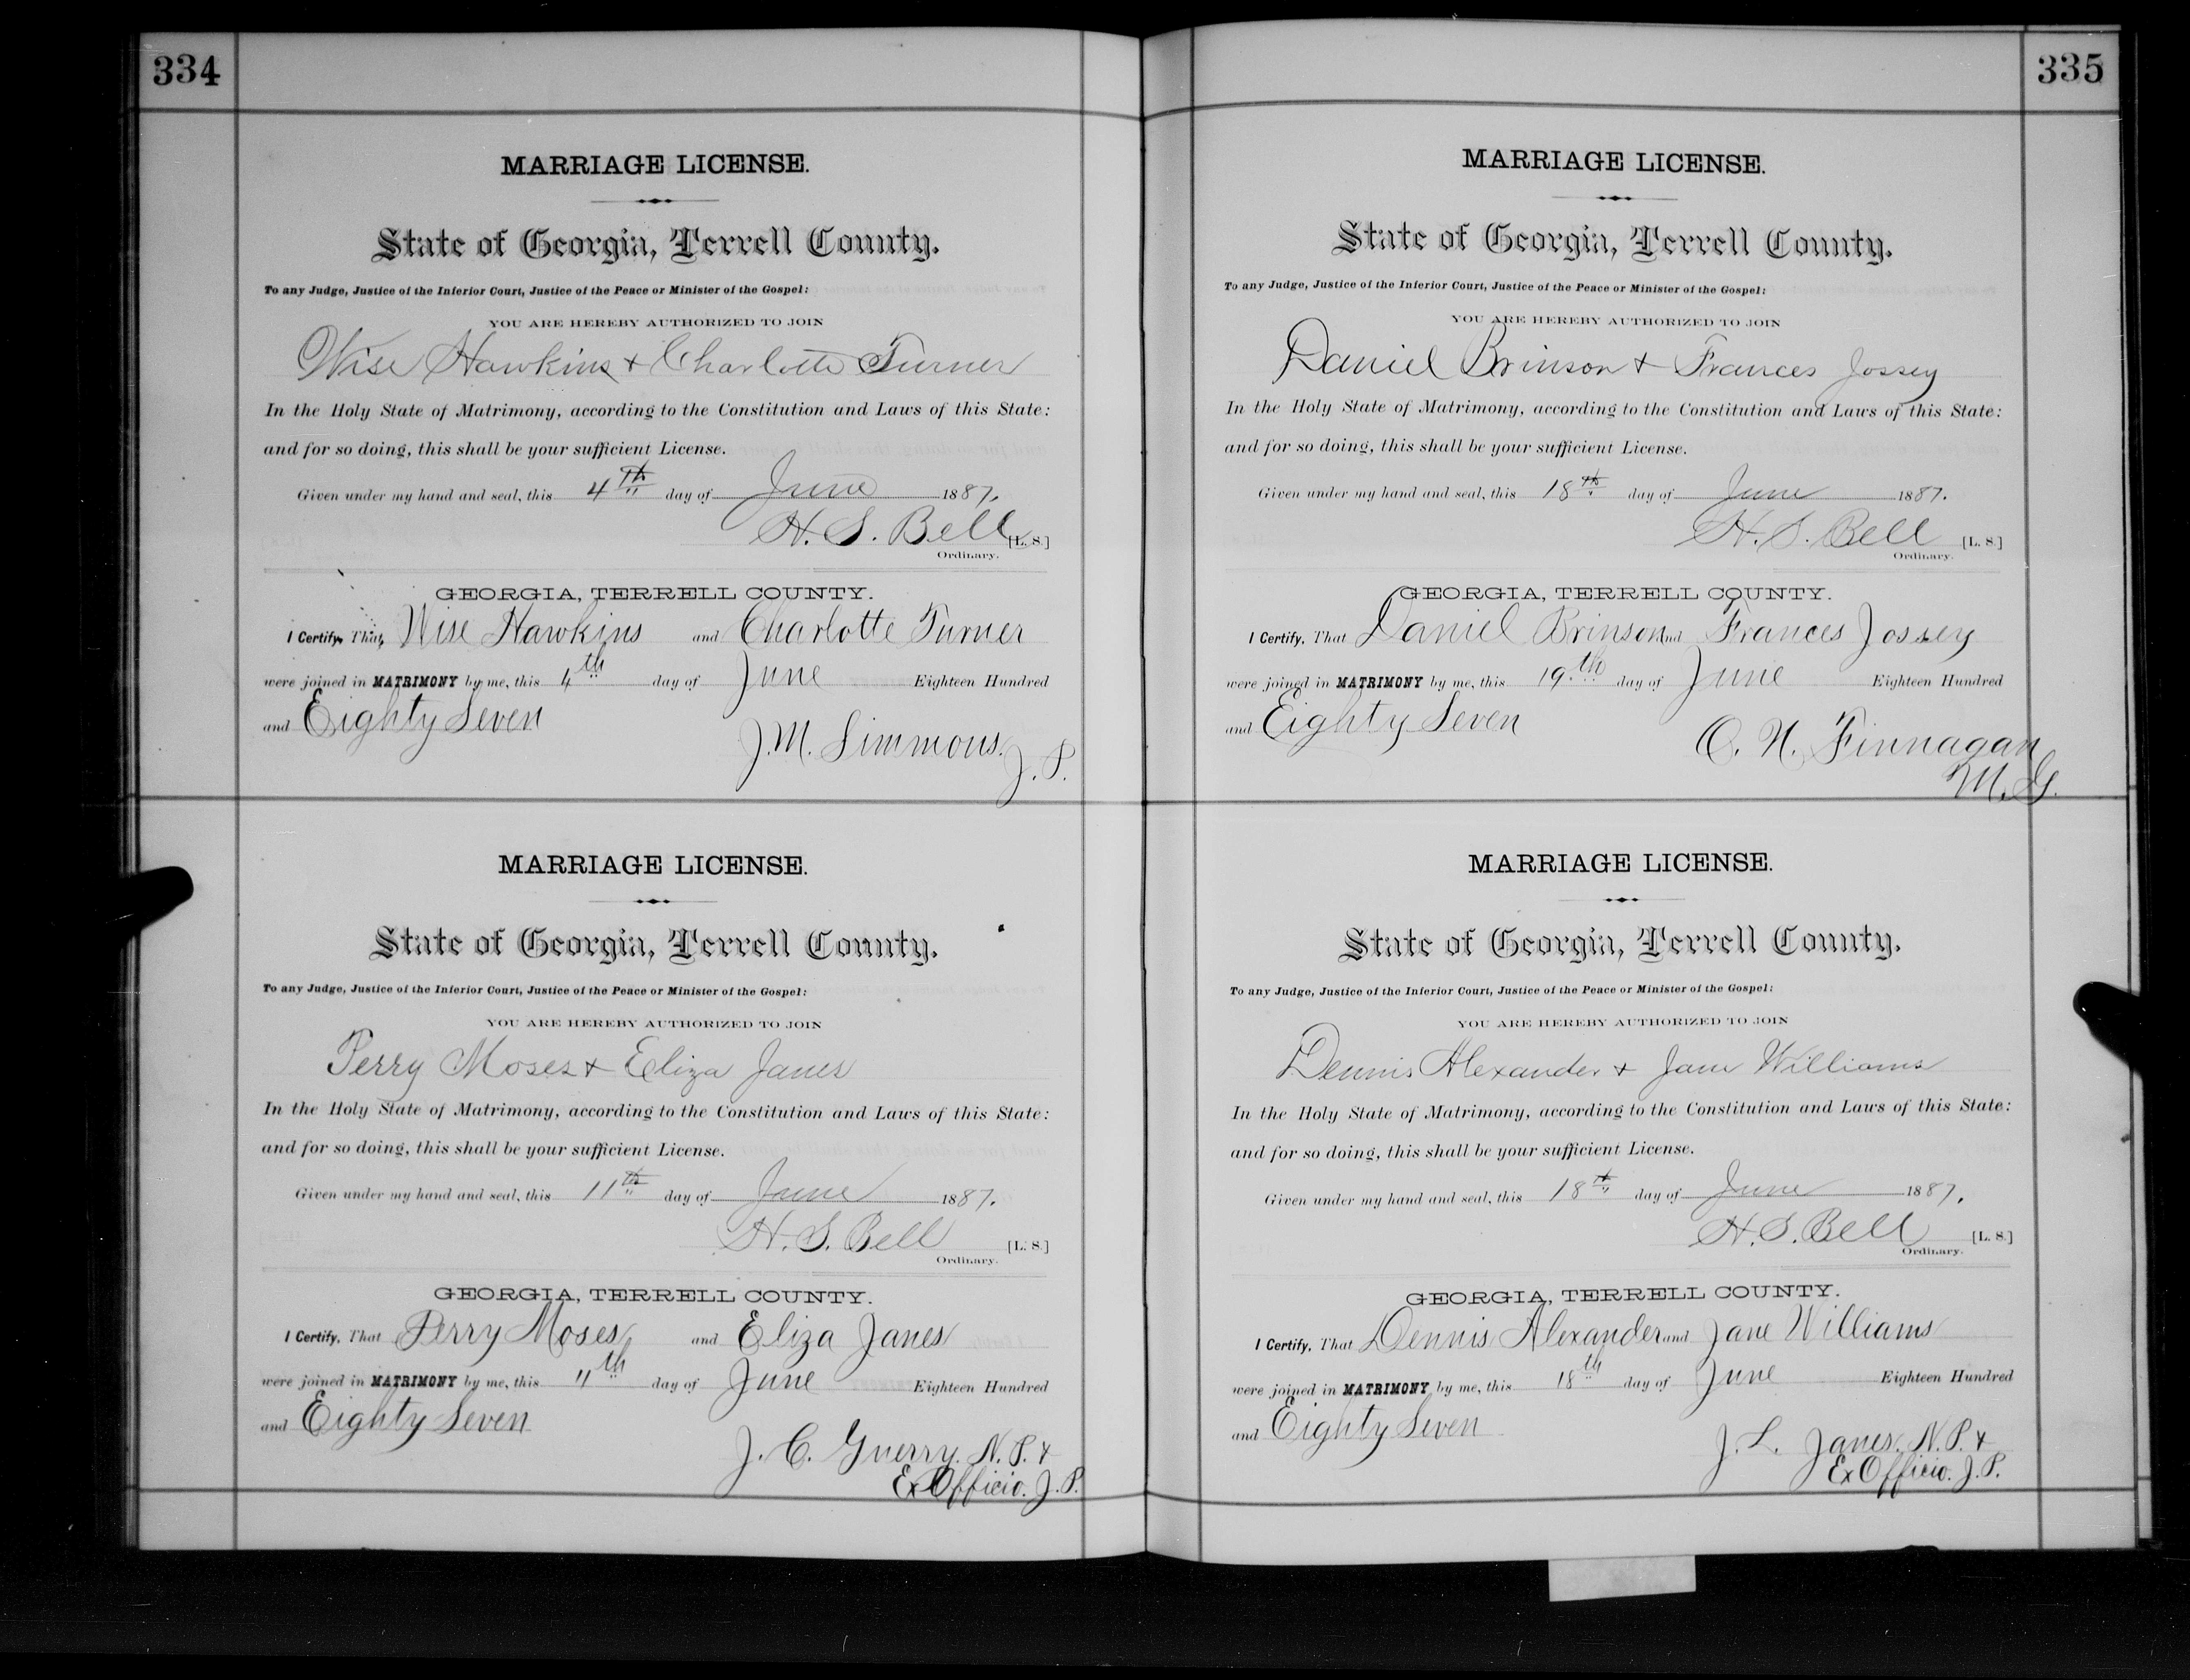 334
MARRIAGE LICENSE.
State of Georgia, Terrell County.
To any Judge, Justice of the Inferior Court, Justice of the Peace or Minister of the Gospel:
YOU ARE HEREBY AUTHORIZED TO JOIN
Wise Hawkins & Charlotte Turner
In the Holy State of Matrimony, according to the Constitution and Laws of this State:
and for so doing, this shall be your sufficient License.
Given under my hand and seal, this 4th day of June 1887.
H. S. Bell [L. S.]
Ordinary.
GEORGIA, TERRELL COUNTY.
I Certify, That, Wise Hawkins and Charlotte Turner
were joined in MATRIMONY by me, this 4th day of June Eighteen Hundred
and Eighty Seven
J. M. Simmons.
J. P.
MARRIAGE LICENSE.
State of Georgia, Terrell County.
To any Judge, Justice of the Inferior Court, Justice of the Peace or Minister of the Gospel:
YOU ARE HEREBY AUTHORIZED TO JOIN
Perry Moses & Eliza Janes
In the Holy State of Matrimony, according to the Constitution and Laws of this State:
and for so doing, this shall be your sufficient License.
Given under my hand and seal, this 11th day of June 1887.
H. S. Bell [L. S.]
Ordinary.
GEORGIA, TERRELL COUNTY.
I Certify, That Perry Moses and Eliza Janes
were joined in MATRIMONY by me, this 11th day of June Eighteen Hundred
and Eighty Seven
J. C. Guerry. N. P. &
Ex Officio. J. P.
335
MARRIAGE LICENSE.
State of Georgia, Terrell County.
To any Judge, Justice of the Inferior Court, Justice of the Peace or Minister of the Gospel:
YOU ARE HEREBY AUTHORIZED TO JOIN
Daniel Brinson & Frances Jossey
In the Holy State of Matrimony, according to the Constitution and Laws of this State:
and for so doing, this shall be your sufficient License.
Given under my hand and seal, this 18th day of June 1887.
H. S. Bell [L. S.]
Ordinary.
GEORGIA, TERRELL COUNTY.
I Certify, That Daniel Brinson and Frances Jossey
were joined in MATRIMONY by me, this 19th day of June Eighteen Hundred
and Eighty Seven
O. N. Finnagan
M. G.
MARRIAGE LICENSE.
State of Georgia, Terrell County.
To any Judge, Justice of the Inferior Court, Justice of the Peace or Minister of the Gospel:
YOU ARE HEREBY AUTHORIZED TO JOIN
Dennis Alexander & Jane Williams
In the Holy State of Matrimony, according to the Constitution and Laws of this State:
and for so doing, this shall be your sufficient License.
Given under my hand and seal, this 18th day of June 1887.
H. S. Bell [L. S.]
Ordinary.
GEORGIA, TERRELL COUNTY.
I Certify, That Dennis Alexander and Jane Williams
were joined in MATRIMONY by me, this 18th day of June Eighteen Hundred
and Eighty Seven
J. L. Janes. N. P. &
Ex Officio. J. P.